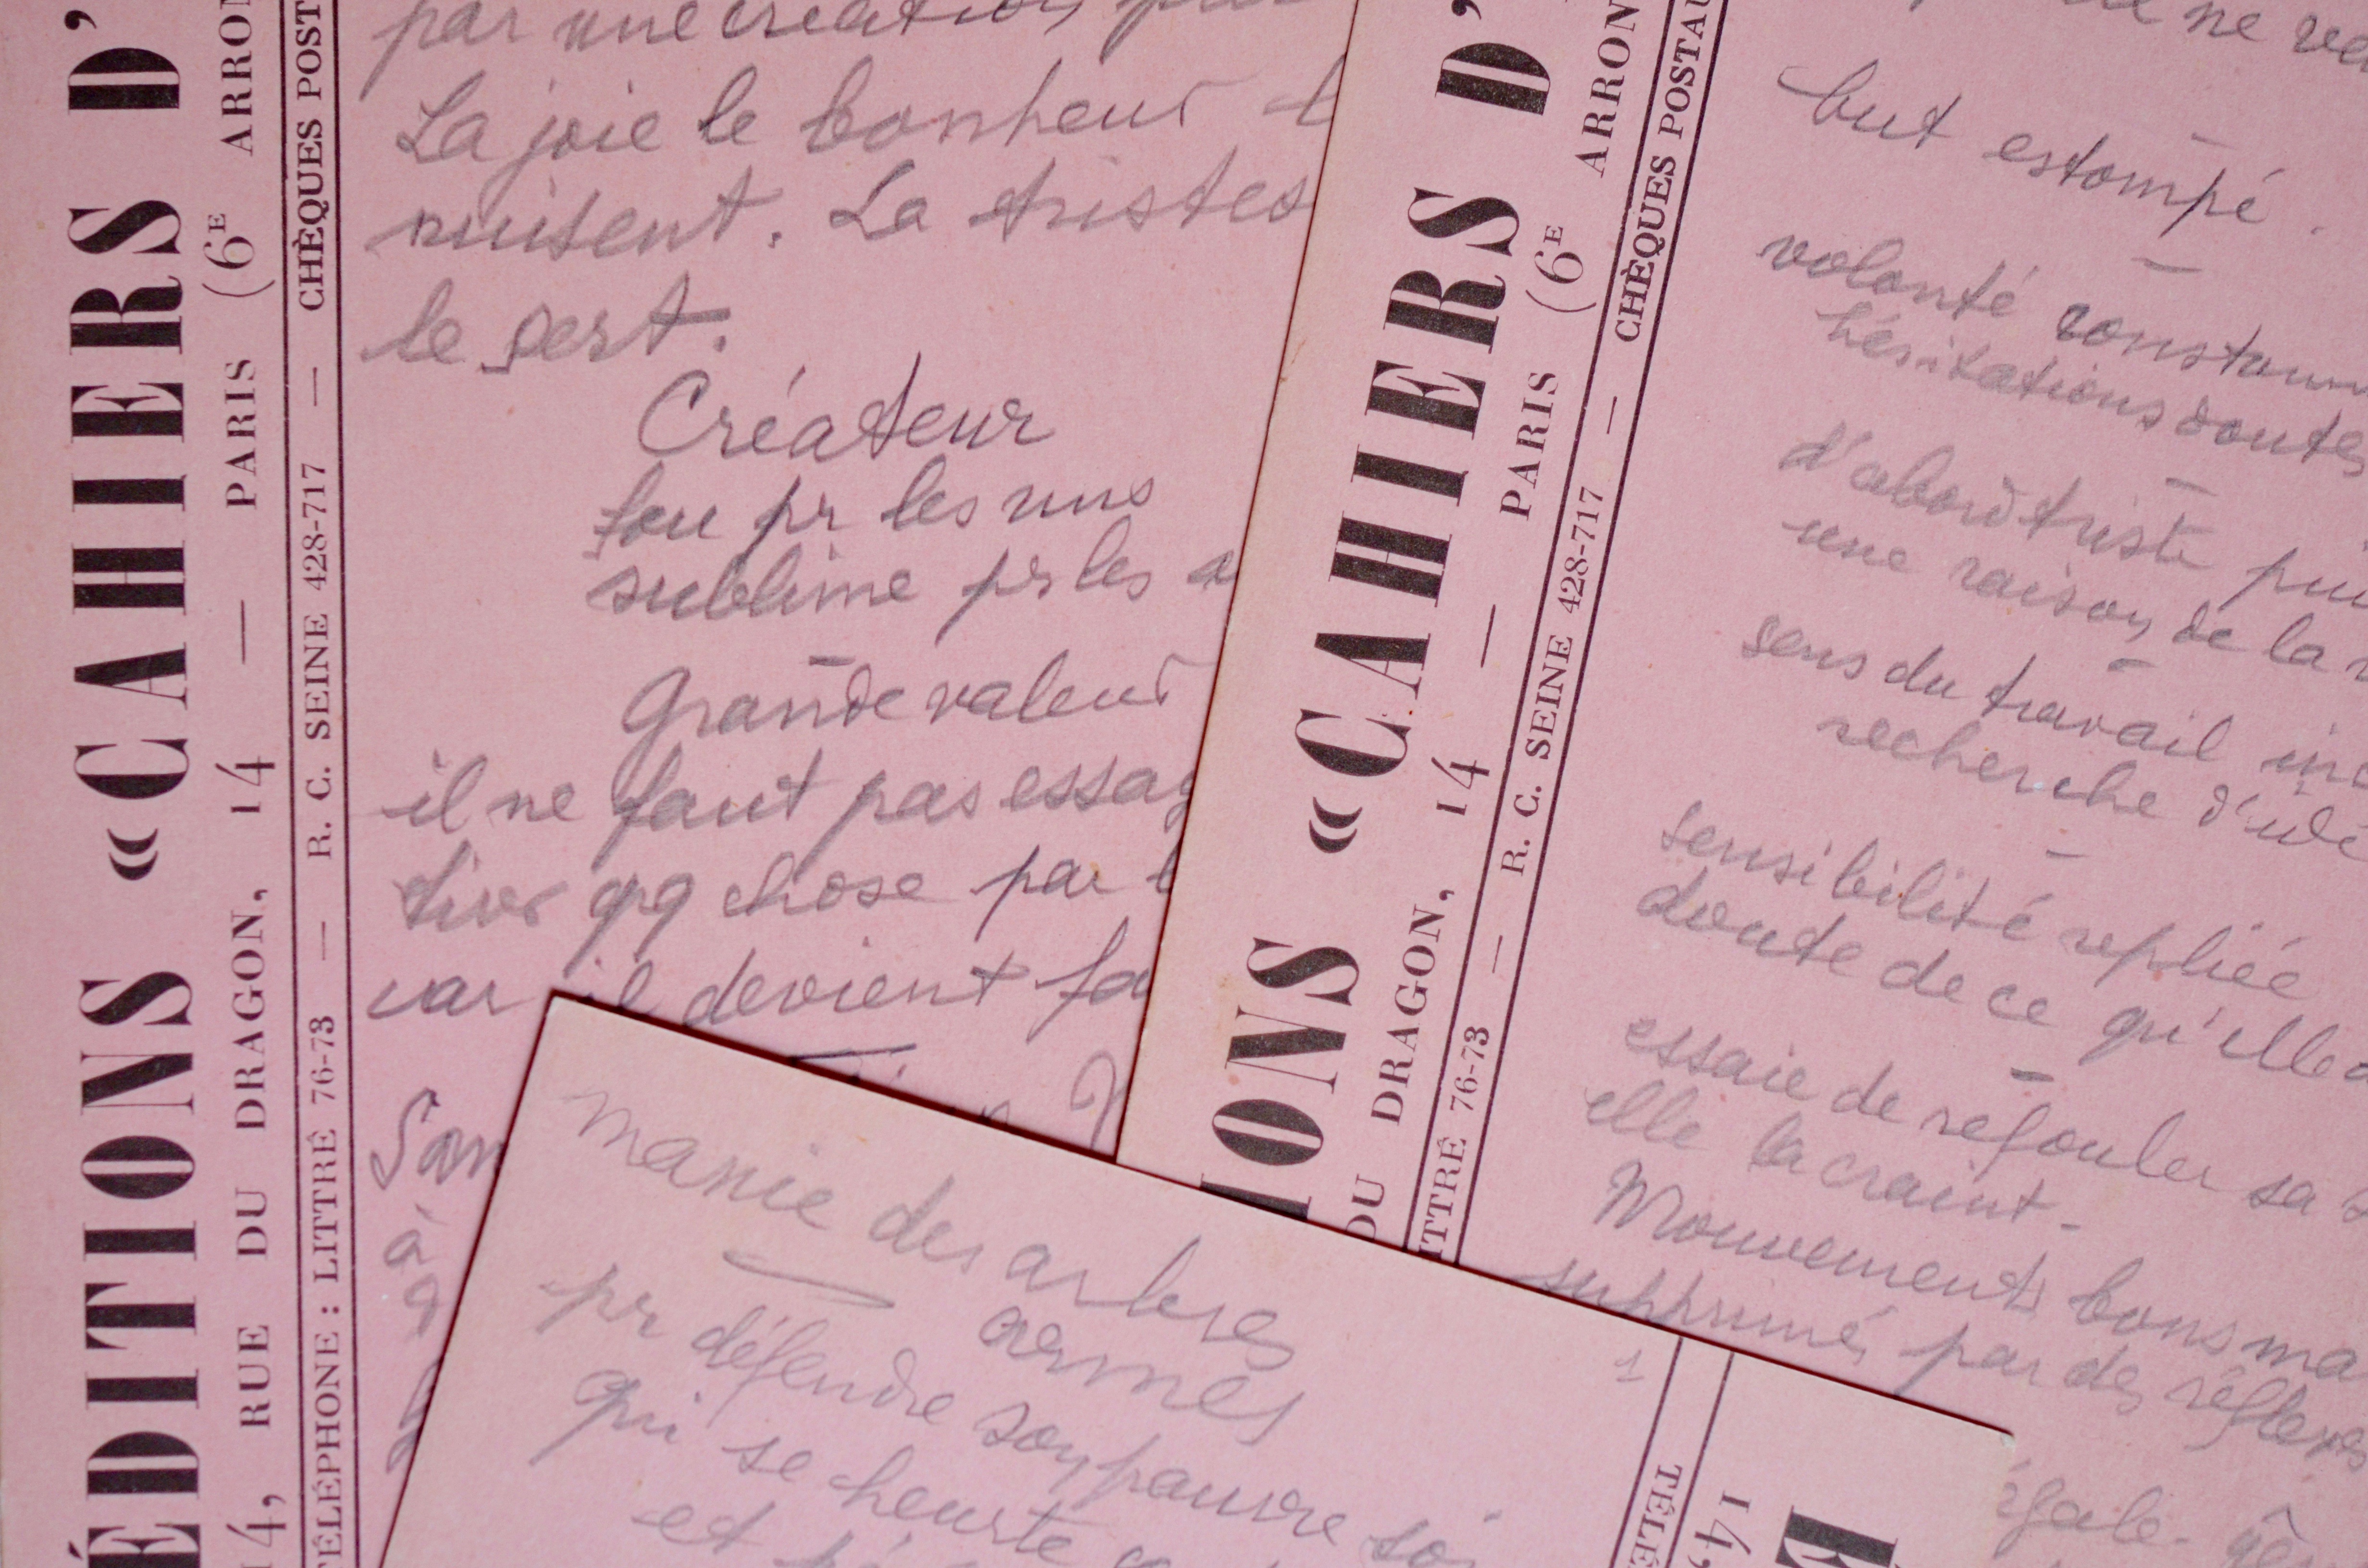 ÉDITIONS « CAHIERS D'
14, RUE DU DRAGON, 14 — PARIS (6E ARRON
TÉLÉPHONE : LITTRÉ 76-73 — R. C. SEINE 428-717 — CHÈQUES POST
par une création
La joie le bonheur
nuisent. La tristes
le sert.
Créateur
fou pr les uns
sublime pr les a
Grande valeur
il ne faut pas essay
tirer qq chose par
car il devient fa
à
IONS « CAHIERS D'
DU DRAGON, 14 — PARIS (6E ARRON
ITTRÉ 76-73 — R. C. SEINE 428-717 — CHÈQUES POSTAU
ne
but estompé.
volonté constam
hésitations doutes
d'abord triste pui
une raison de la
sens du travail
recherche d'idé
sensibilité repliée
doute de ce qu'elle
essaie de refouler sa
elle la craint -
Mouvements bons ma
supprimés par des réflexes
manie des arbres
armés
pr défendre son pauvre
qui se heurte
et
1
TÉLÉ
14,
É